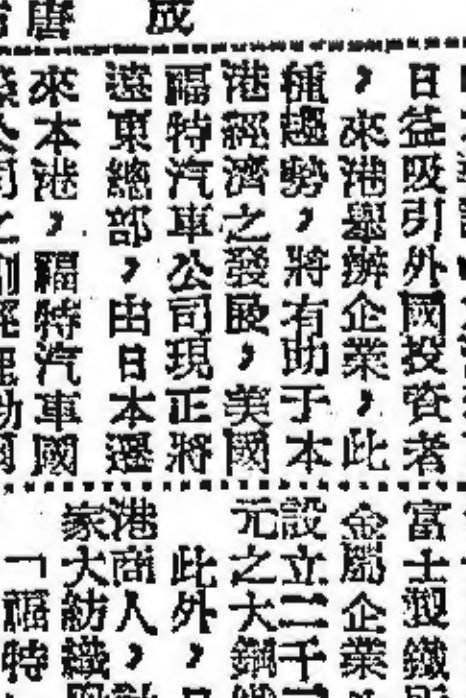 唐 成
日益吸引外國投資者
，來港舉辦企業，此
種趨勢，將有助于本
港經濟之發展，美國
福特汽車公司現正將
遠東總部，由日本遷
來本港，福特汽車國
富士製鐵
金屬企業
設立二千
元之大鋼
此外，
港商人，
家大紡織
「福特